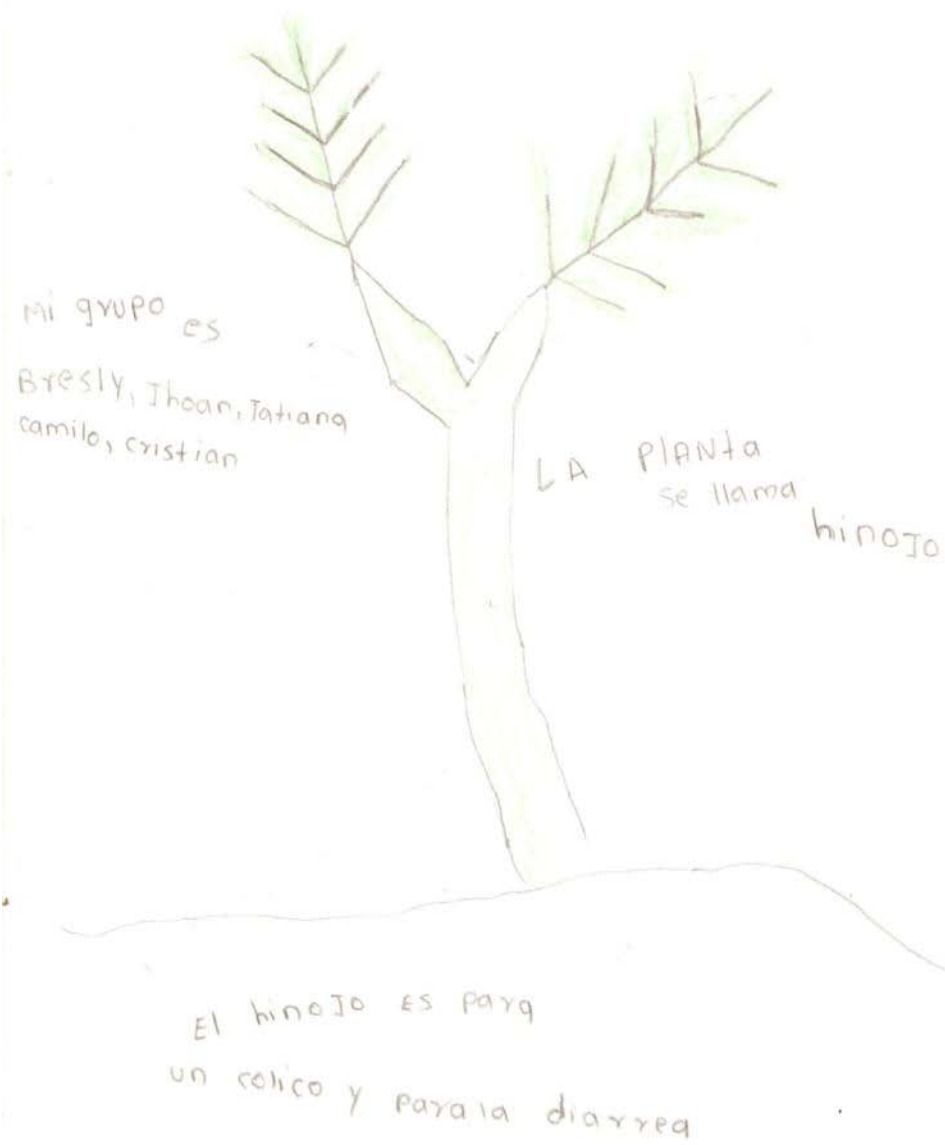 Mi grupo es
Bresly, Jhoan, Tatiana
camilo, cristian
LA PlANta
se llama
hinoJo
El hinoJo ES para
un colico y para la diarrea